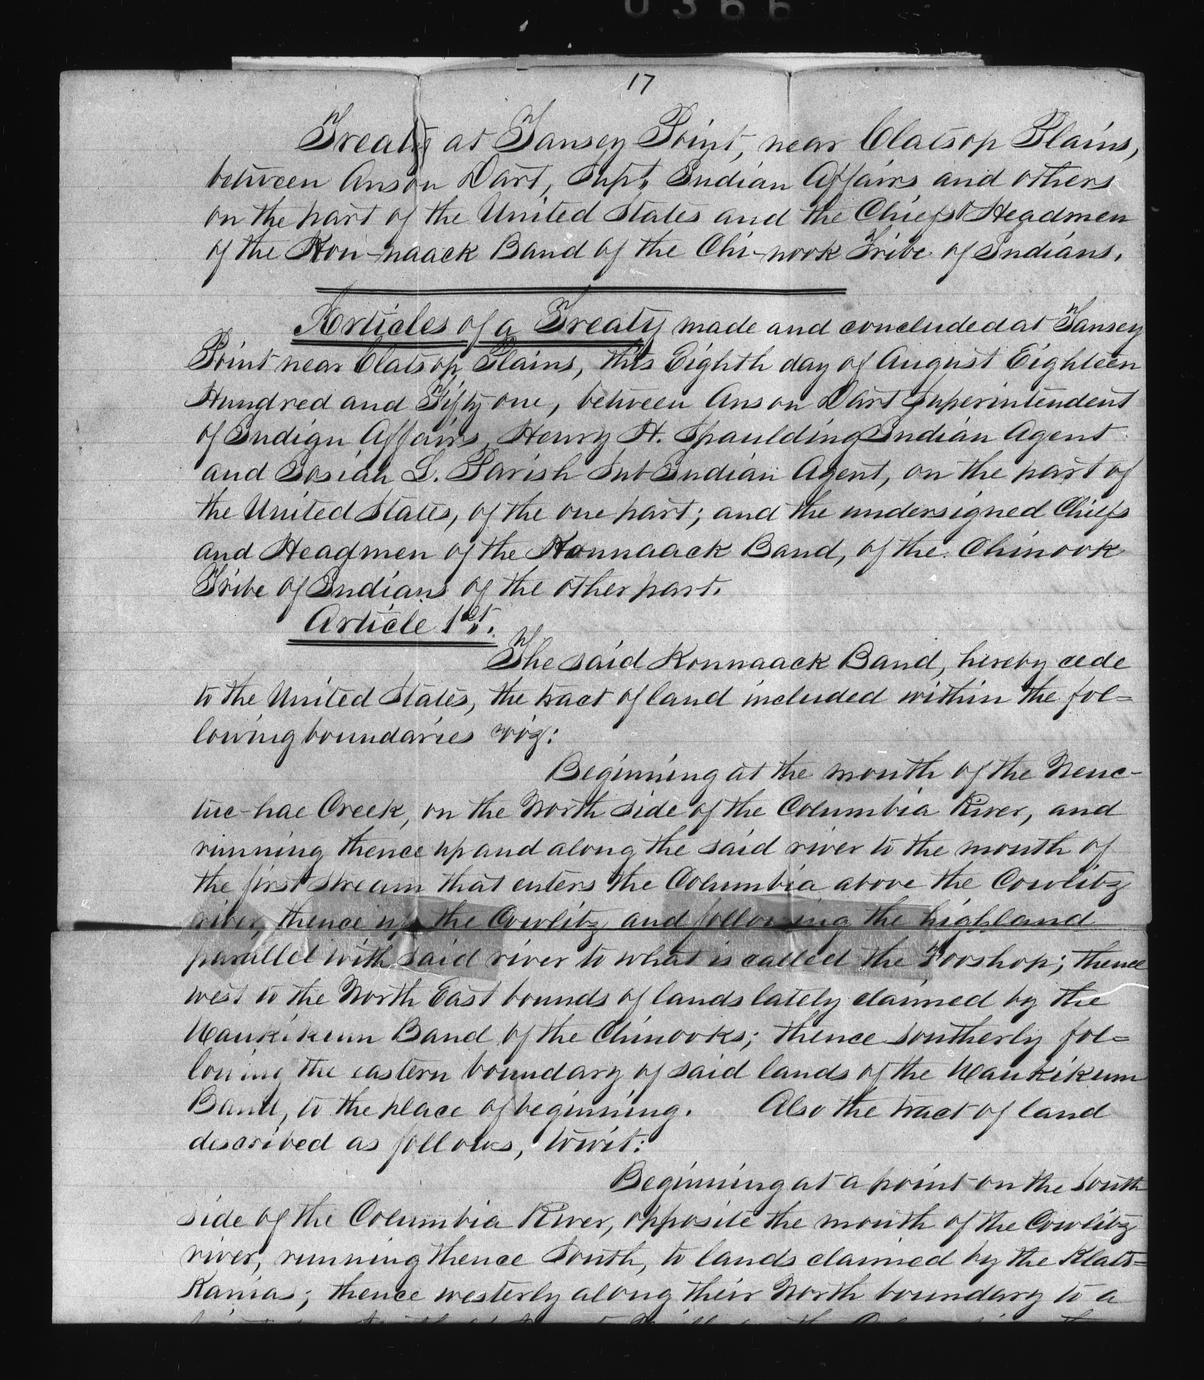 0366
17
Treaty at Tansey Point, near Clatsop Plains,
between Anson Dart, Supt. Indian Affairs and others
on the part of the United States and the Chiefs & Headmen
of the Kon-naack Band of the Chi-nook Tribe of Indians.
Articles of a Treaty made and concluded at Tansey
Point near Clatsop Plains, this Eighth day of August Eighteen
Hundred and Fifty one, between Anson Dart Superintendent
of Indian Affairs, Henry H. Spaulding Indian Agent
and Josiah L. Parish Sub Indian Agent, on the part of
the United States, of the one part; and the undersigned Chiefs
and Headmen of the Konnaack Band, of the Chinook
Tribe of Indians of the other part.
Article 1st.
The said Konnaack Band, hereby cede
to the United States, the tract of land included within the fol=
lowing boundaries viz:
Beginning at the mouth of the Neuc-
tuc-hae Creek, on the North side of the Columbia River, and
running thence up and along the said river to the mouth of
the first stream that enters the Columbia above the Cowlitz
river, thence up the Cowlitz and following the highland
parallel with said river to what is called the Tooshop; thence
west to the North East bounds of lands lately claimed by the
Waukikum Band of the Chinooks; thence southerly fol=
lowing the eastern boundary of said lands of the Waukikum
Band, to the place of beginning. Also the tract of land
described as follows, towit:
Beginning at a point on the South
side of the Columbia River, opposite the mouth of the Cowlitz
river, running thence South, to lands claimed by the Klats=
Kanias; thence westerly along their North boundary to a